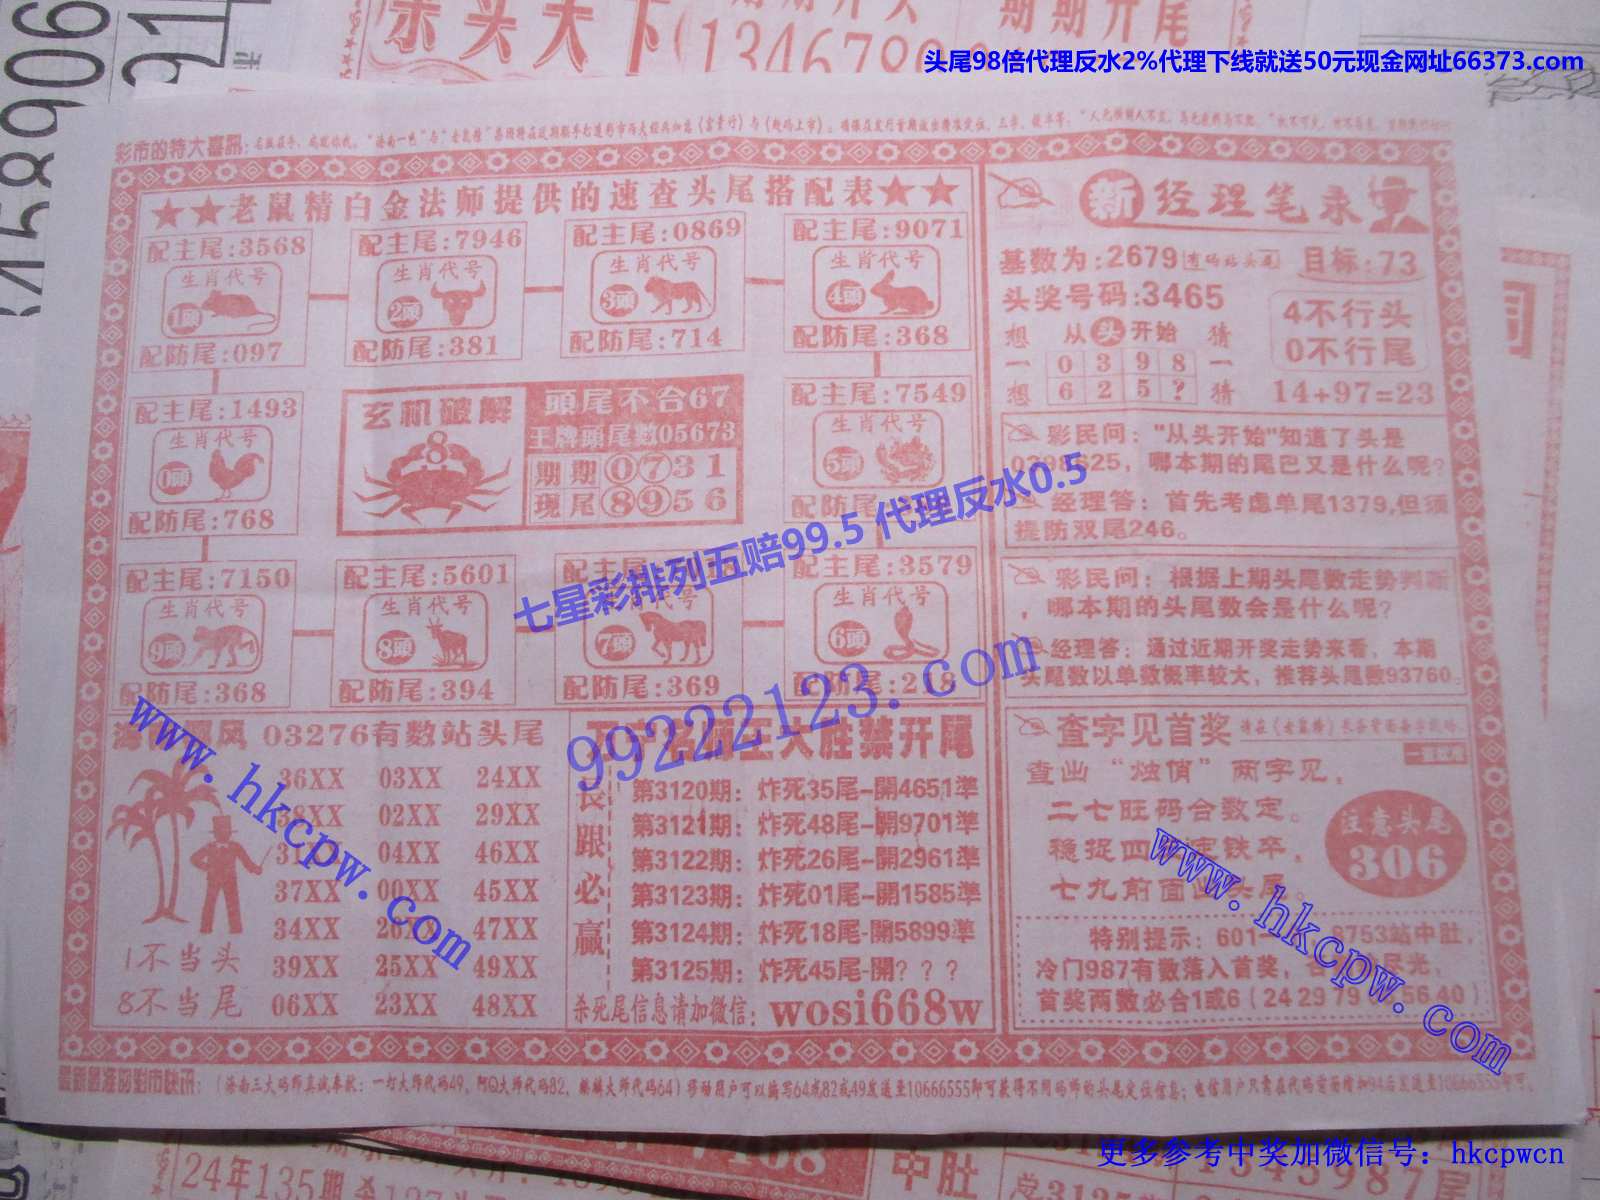 头尾98倍代理反水2%代理下线就送50元现金网址66373.com
彩市的特大喜讯:
★★老鼠精白金法师提供的速查头尾搭配表★★
配主尾:3568
生肖代号
1頭
配防尾:097
配主尾:7946
生肖代号
2頭
配防尾:381
配主尾:0869
生肖代号
3頭
配防尾:714
配主尾:9071
生肖代号
4頭
配防尾:368
配主尾:1493
生肖代号
0頭
配防尾:768
玄机破解
8
頭尾不合67
王牌頭尾數05673
期期0731
現尾8956
配主尾:7549
生肖代号
5頭
配防尾:
配主尾:7150
生肖代号
9頭
配防尾:368
配主尾:5601
生肖代号
8頭
配防尾:394
配主尾:
生肖代号
7頭
配防尾:369
配主尾:3579
生肖代号
6頭
配防尾:218
03276有数站头尾
36XX 03XX 24XX
38XX 02XX 29XX
04XX 46XX
37XX 00XX 45XX
34XX 26XX 47XX
39XX 25XX 49XX
06XX 23XX 48XX
1不当头
8不当尾
禁开尾
长跟必赢
第3120期: 炸死35尾-開4651準
第3121期: 炸死48尾-開9701準
第3122期: 炸死26尾-開2961準
第3123期: 炸死01尾-開1585準
第3124期: 炸死18尾-開5899準
第3125期: 炸死45尾-開? ? ?
杀死尾信息请加微信: wosi668w
新经理笔录
基数为:2679有码站头尾 目标:73
头奖号码:3465
4不行头
0不行尾
想 从头开始 猜
一 0 3 9 8 一
想 6 2 5 ? 猜
14+97=23
彩民问: "从头开始"知道了头是
0398625, 哪本期的尾巴又是什么呢?
经理答: 首先考虑单尾1379,但须
提防双尾246。
彩民问: 根据上期头尾数走势判断
, 哪本期的头尾数会是什么呢?
经理答: 通过近期开奖走势来看, 本期
头尾数以单数概率较大, 推荐头尾数93760。
查字见首奖
查出 "烛俏" 两字见,
二七旺码合数定。
稳捉四 定铁卒,
七九前面 头尾。
注意头尾
306
特别提示: 601 8753站中肚,
冷门987有数落入首奖,
首奖两数必合1或6 (24 29 79 56.40)
(海南三大码师真诚奉献: 一打大师代码49, 阿Q大师代码82, 麒麟大师代码64) 移动用户可以编写64或82或49发送至10666555即可获得不同码师的头尾定位信息; 电信用户只需在代码前面增加94后发送至10666555即可。
七星彩排列五赔99.5 代理反水0.5
99222123.com
www.hkcpw.com
www.hkcpw.com
更多参考中奖加微信号: hkcpwcn
24年135期